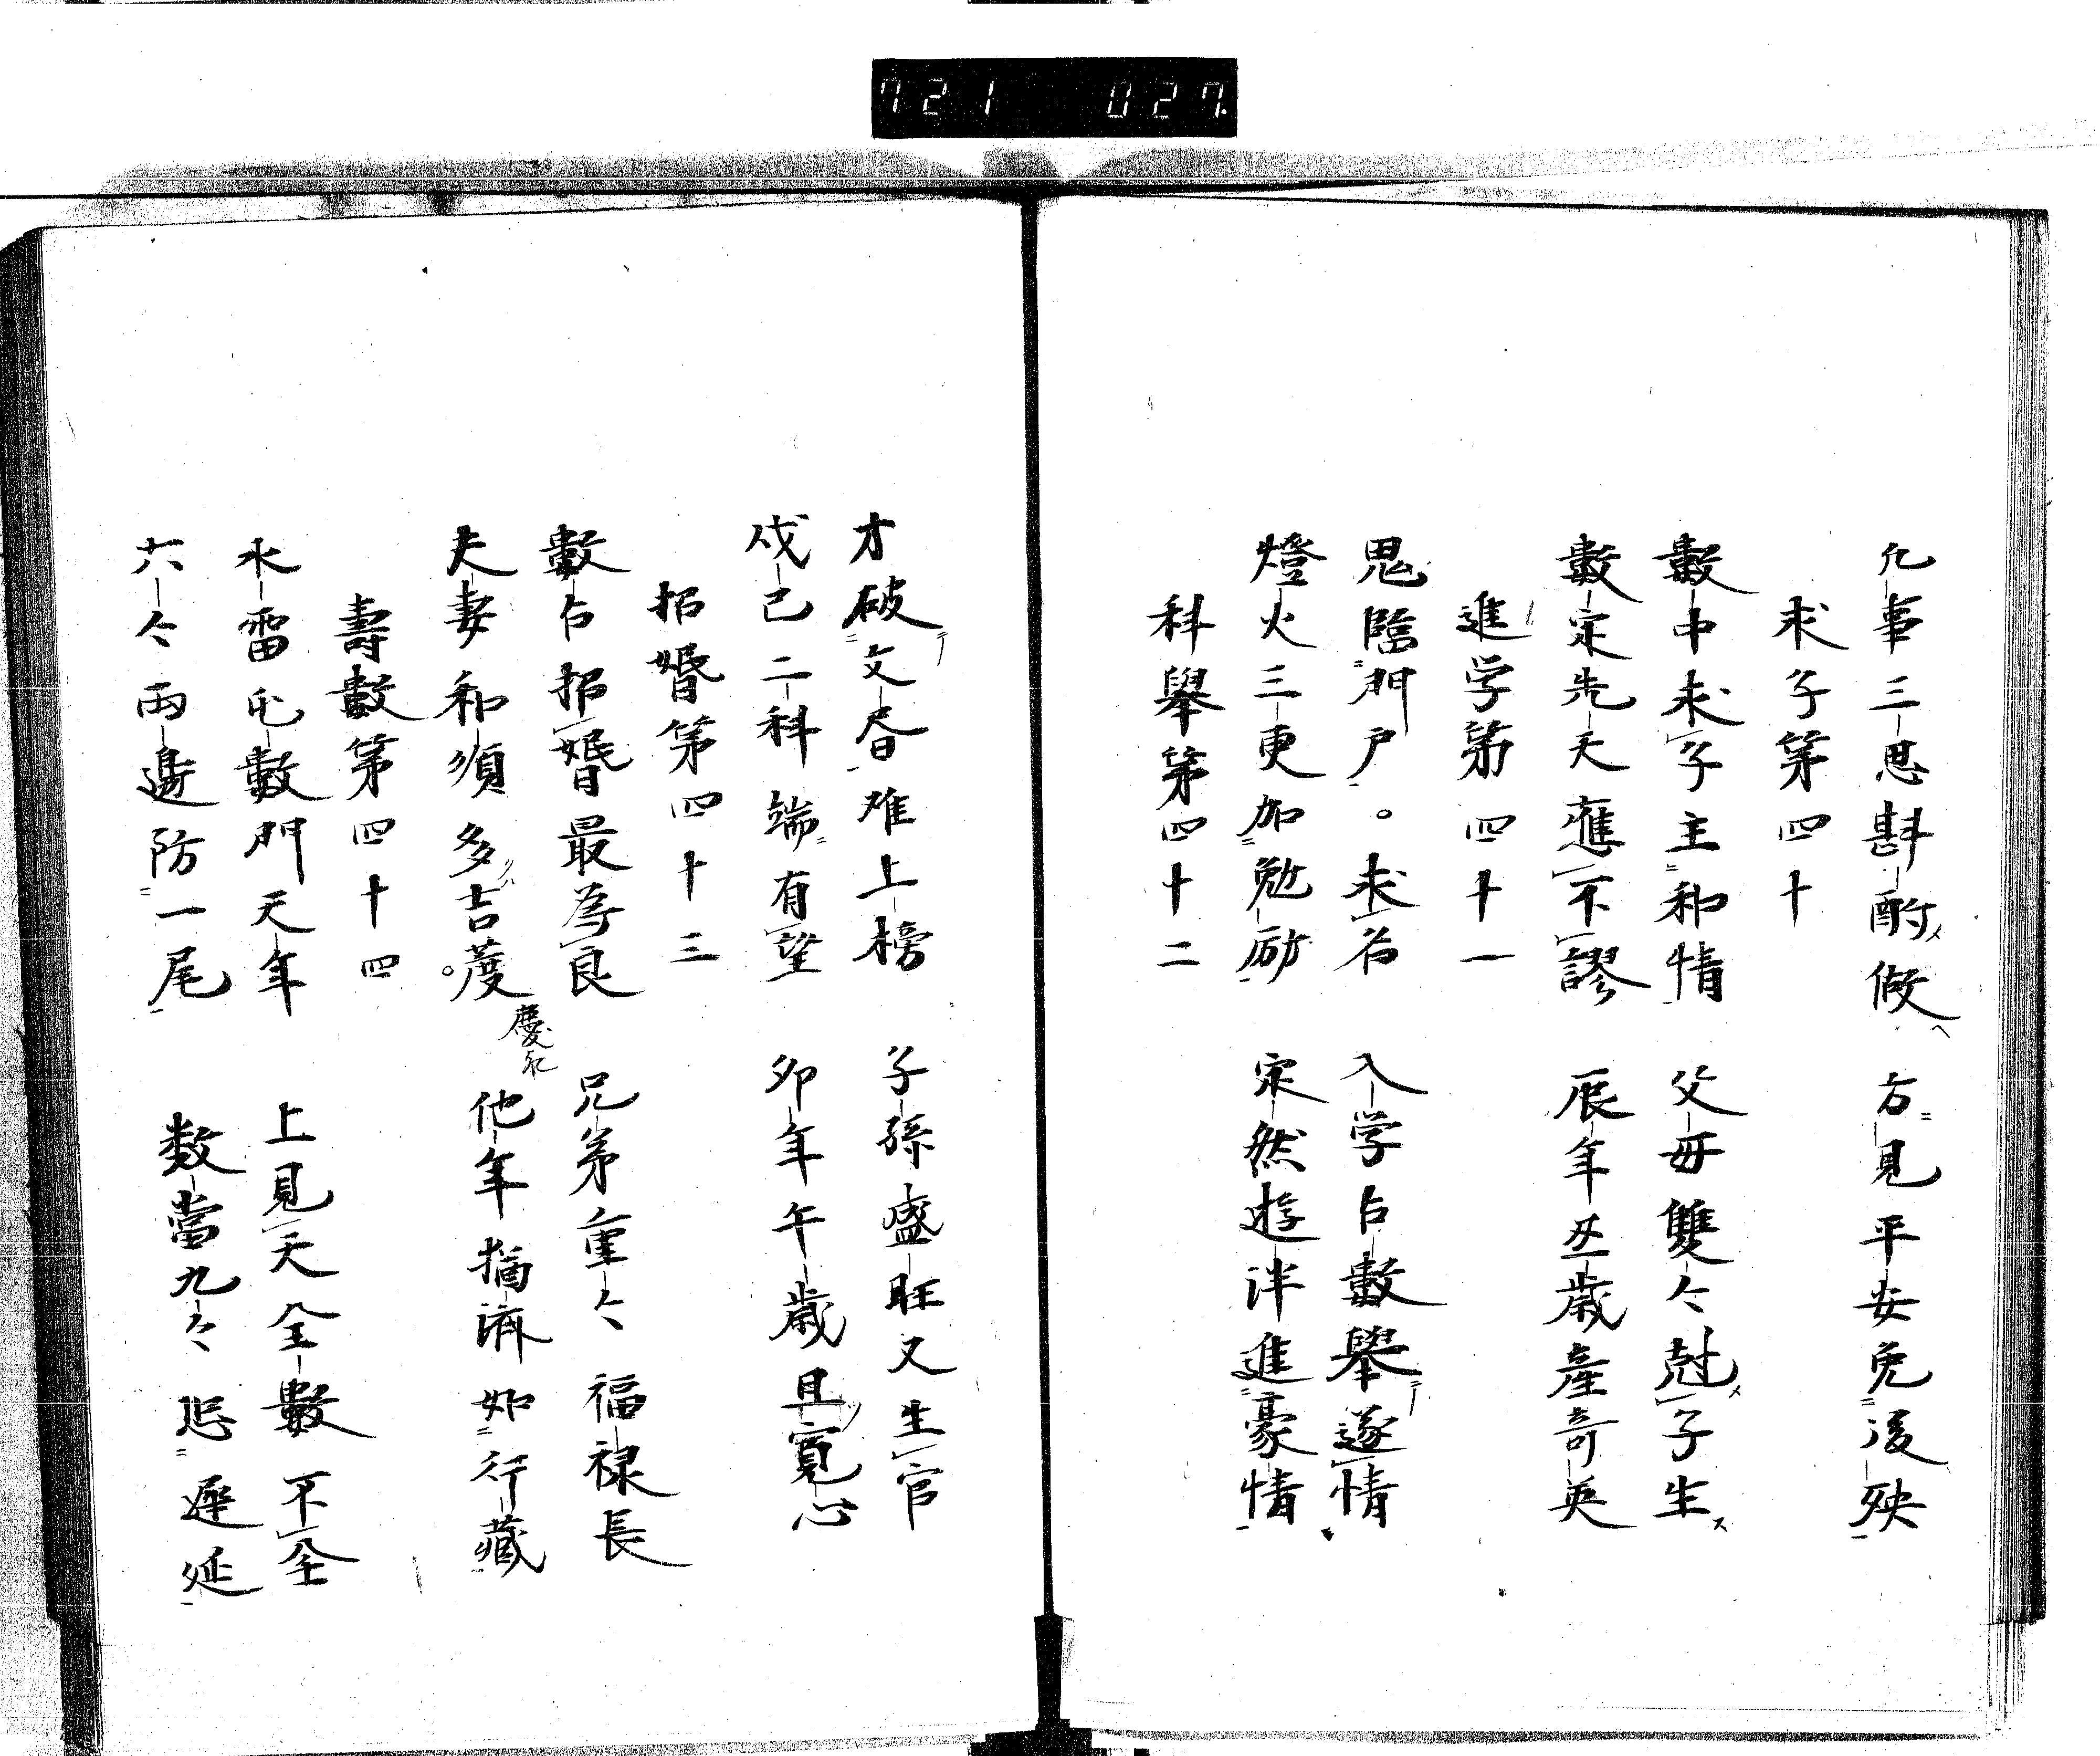 721 027
凢事三思斟酌做 方見平安免後殃
求子第四十
數中求子主和情 父母雙々尅子生
數定先天應不謬 辰年丑歳産奇英
進学第四十一
鬼臨門戸。求名 入学占數舉遂情
燈火三更加勉励 定然遊泮進豪情
科舉第四十二
才破文昌难上榜 子孫盛旺又生官
戌己二科端有望 卯年午歳且寛心
招婚第四十三
數占招婚最為良 兄弟重々福禄長
夫妻和須多吉 他年猶済如行藏
慶
壽數第四十四
水雷屯數門天年 上見天全數不全
六々兩邊防一尾 数當九々恐遲延